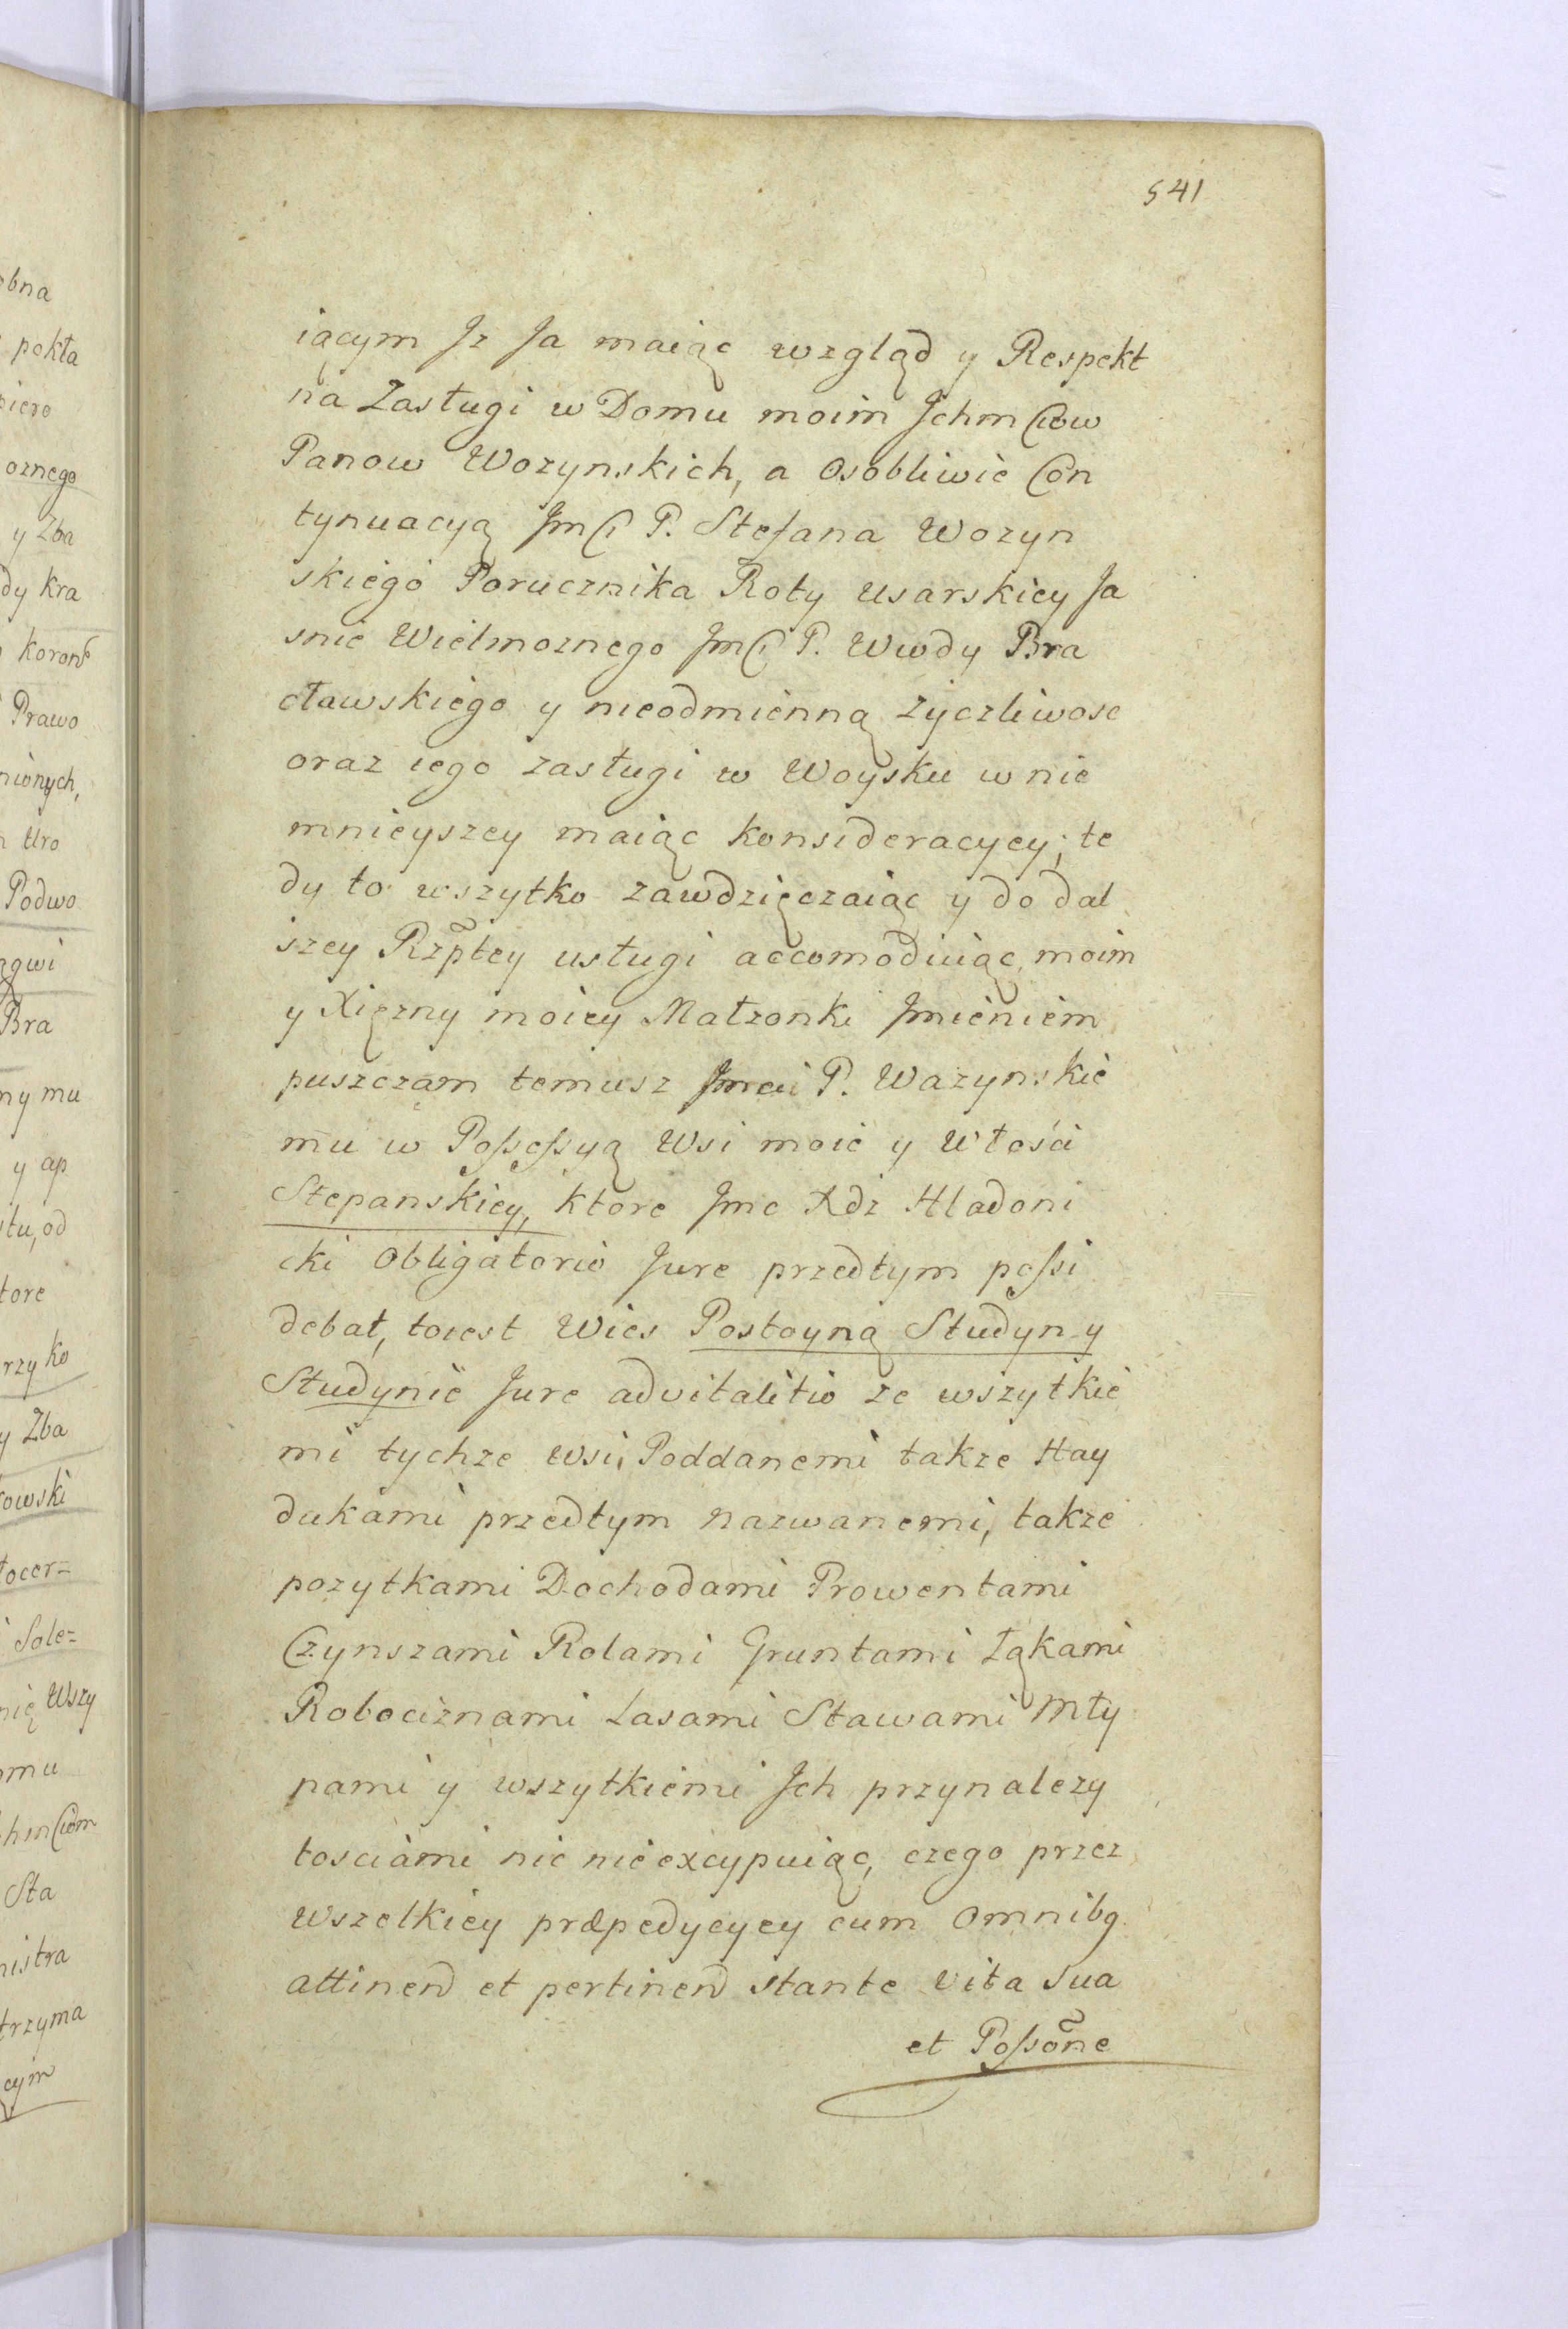 541
iącym Jz Ja maiąc wzgląd y Respekt
na Zasługi w Domu moim Jchm Ciow
Panow Wozynskich, a Osobliwie Con
tynuacyą Jm Ci P. Stefana Wozyn
skiego Porucznika Roty Usarskiey Ja
snie Wielmoznego Jm Ci P. Wwdy Bra
cławskiego y nieodmienną zyczliwosc
oraz iego zasługi w Woysku w nie
mnieyszey maiąc konsideracyey; te
dy to wszytko zawdzięczaiąc y do dal
szey Rzptey usługi accomoduiąc, moim
y Xięzny moiey Matzonki Jmieniem
puszczam temusz Jmci P. Wazynskie
mu w Possessyą Wsi moie y Włości
Stepanskiey, ktore Jmc Xdz Hladoni
cki Obligatorio Jure przedtym possi
debat, toiest Wies Postoyną Studyn y
Studynie Jure advitalitio ze wszytkie
mi tychze wsi, Poddanemi takze Hay
dukami przedtym nazwanemi, takze
pozytkami Dochodami Prowentami
Czynszami Rolami Gruntami Łąkami
Robociznami Lasami Stawami Mły
nami y wszytkiemi Jch przynalezy
tosciami nic nie excypuiąc, czego przez
wszelkiey præpedycyey cum omnibq
attinend et pertinend stante vita sua
et Possone
obna
pokła
piero
oznego
y Zba
dy kra
koron
Prawo
nionych,
Uro
Podwo
ągwi
Bra
ny mu
y ap
stu, od
tore
rzy ko
y Zba
kowski
tocer=
Sole=
nię Wszy
mu
hm Ciom
Sta
nistra
trzyma
ącym